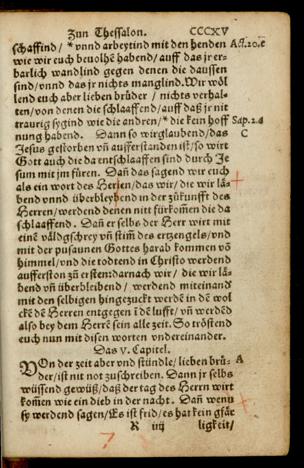 Zun Thessalon. CCCXV
schaffind/ * vnnd arbeytind mit den henden Act.20.e
wie wir euch beuolhẽ habend/ auff das jr er-
barlich wandlind gegen denen die daussen
sind/vnnd das jr nichts manglind. Wir wöl
lend euch aber lieben brůder / nichts verhal-
ten/von denen die schlaaffend/auff daß jr nit
traurig sygind wie die andren/* die kein hoff Sap.2.a
nung habend. Dann so wir glaubend/das C
Jesus gestorben vñ aufferstanden ist/so wirt
Gott auch die da entschlaaffen sind durch Je
sum mit jm füren. Dañ das sagend wir euch
als ein wort des Herren/das wir/ die wir lä-
bend vnnd überbleybend in der zůkunfft des
Herren/werdend denen nitt fürkom̃en die da
schlaaffend. Dañ er selbs der Herr wirt mit
einẽ väldgschrey vñ stim̃ des ertzengels/vnd
mit der pusaunen Gottes harab kommen võ
himmel/vnd die todtend in Christo werdend
aufferston zů ersten: darnach wir / die wir lä-
bend vñ überbleibend / werdend mit einand̕
mit den selbigen hingezuckt werdẽ in dẽ wol
ckẽ dẽ Herren entgegen ĩ dẽ lufft/ vñ werdẽd
also bey dem Herrẽ sein alle zeit. So tröstend
euch nun mit disen worten vndereinander.
Das v. Capitel.
VOn der zeit aber vnd stündle/ lieben brů- A
der/ist nit not zu schreiben. Dann jr selbs
wüssend gewüß/daß der tag des Herrn wirt
kom̃en wie ein dieb in der nacht. Dañ wenn
sy werdend sagen/Es ist frid/es hat kein gfär
R iij ligkeit/